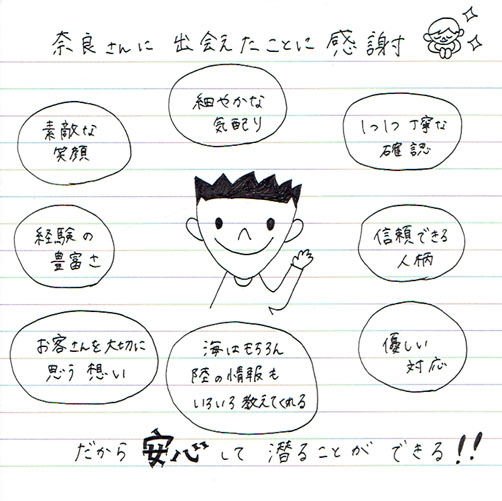 奈良さんに 出会えたことに 感謝
細やかな
気配り
素敵な
笑顔
1つ1つ丁寧な
確認
経験の
豊富さ
信頼できる
人柄
お客さんを大切に
思う想い
海はもちろん
陸の情報も
いろいろ教えてくれる
優しい
対応
だから 安心して 潜ることが できる!!